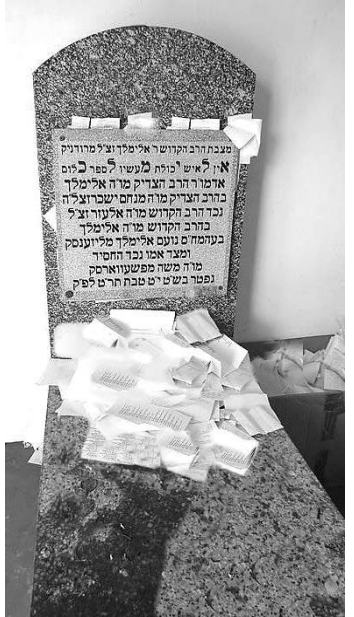 מצבת הרב הקדוש ר אלימלך זצ"ל מרודניק
אין לאיש יכולת מעשיו לספר כלום
אדמו"ר הרב הצדיק מו"ה אלימלך
בהרב הצדיק מו"ה מנחם ישכר זצלה"ה
נכד הרב הקדוש מו"ה אלעזר זצ"ל
בהרב הקדוש מו"ה אלימלך
בעהמח"ס נועם אלימלך מליזענסק
ומצד אמו נכד החסיד
מו"ה משה מפשעווארסק
נפטר בש"ט י"ט טבת תר"ט לפ"ק